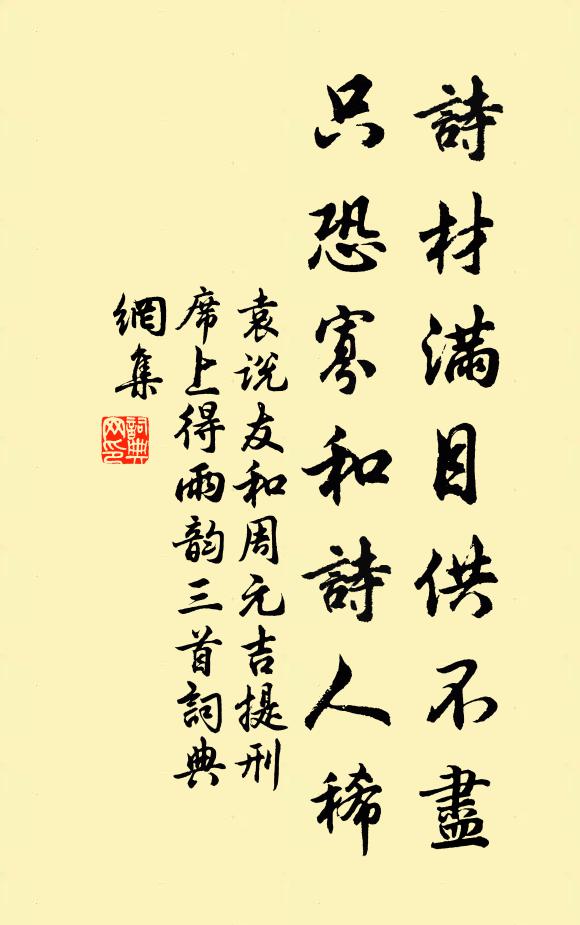 詩材滿目供不盡
只恐寡和詩人稀
袁説友和周元吉提刑
席上得雨韵三首詞典
網集
詞典
网印